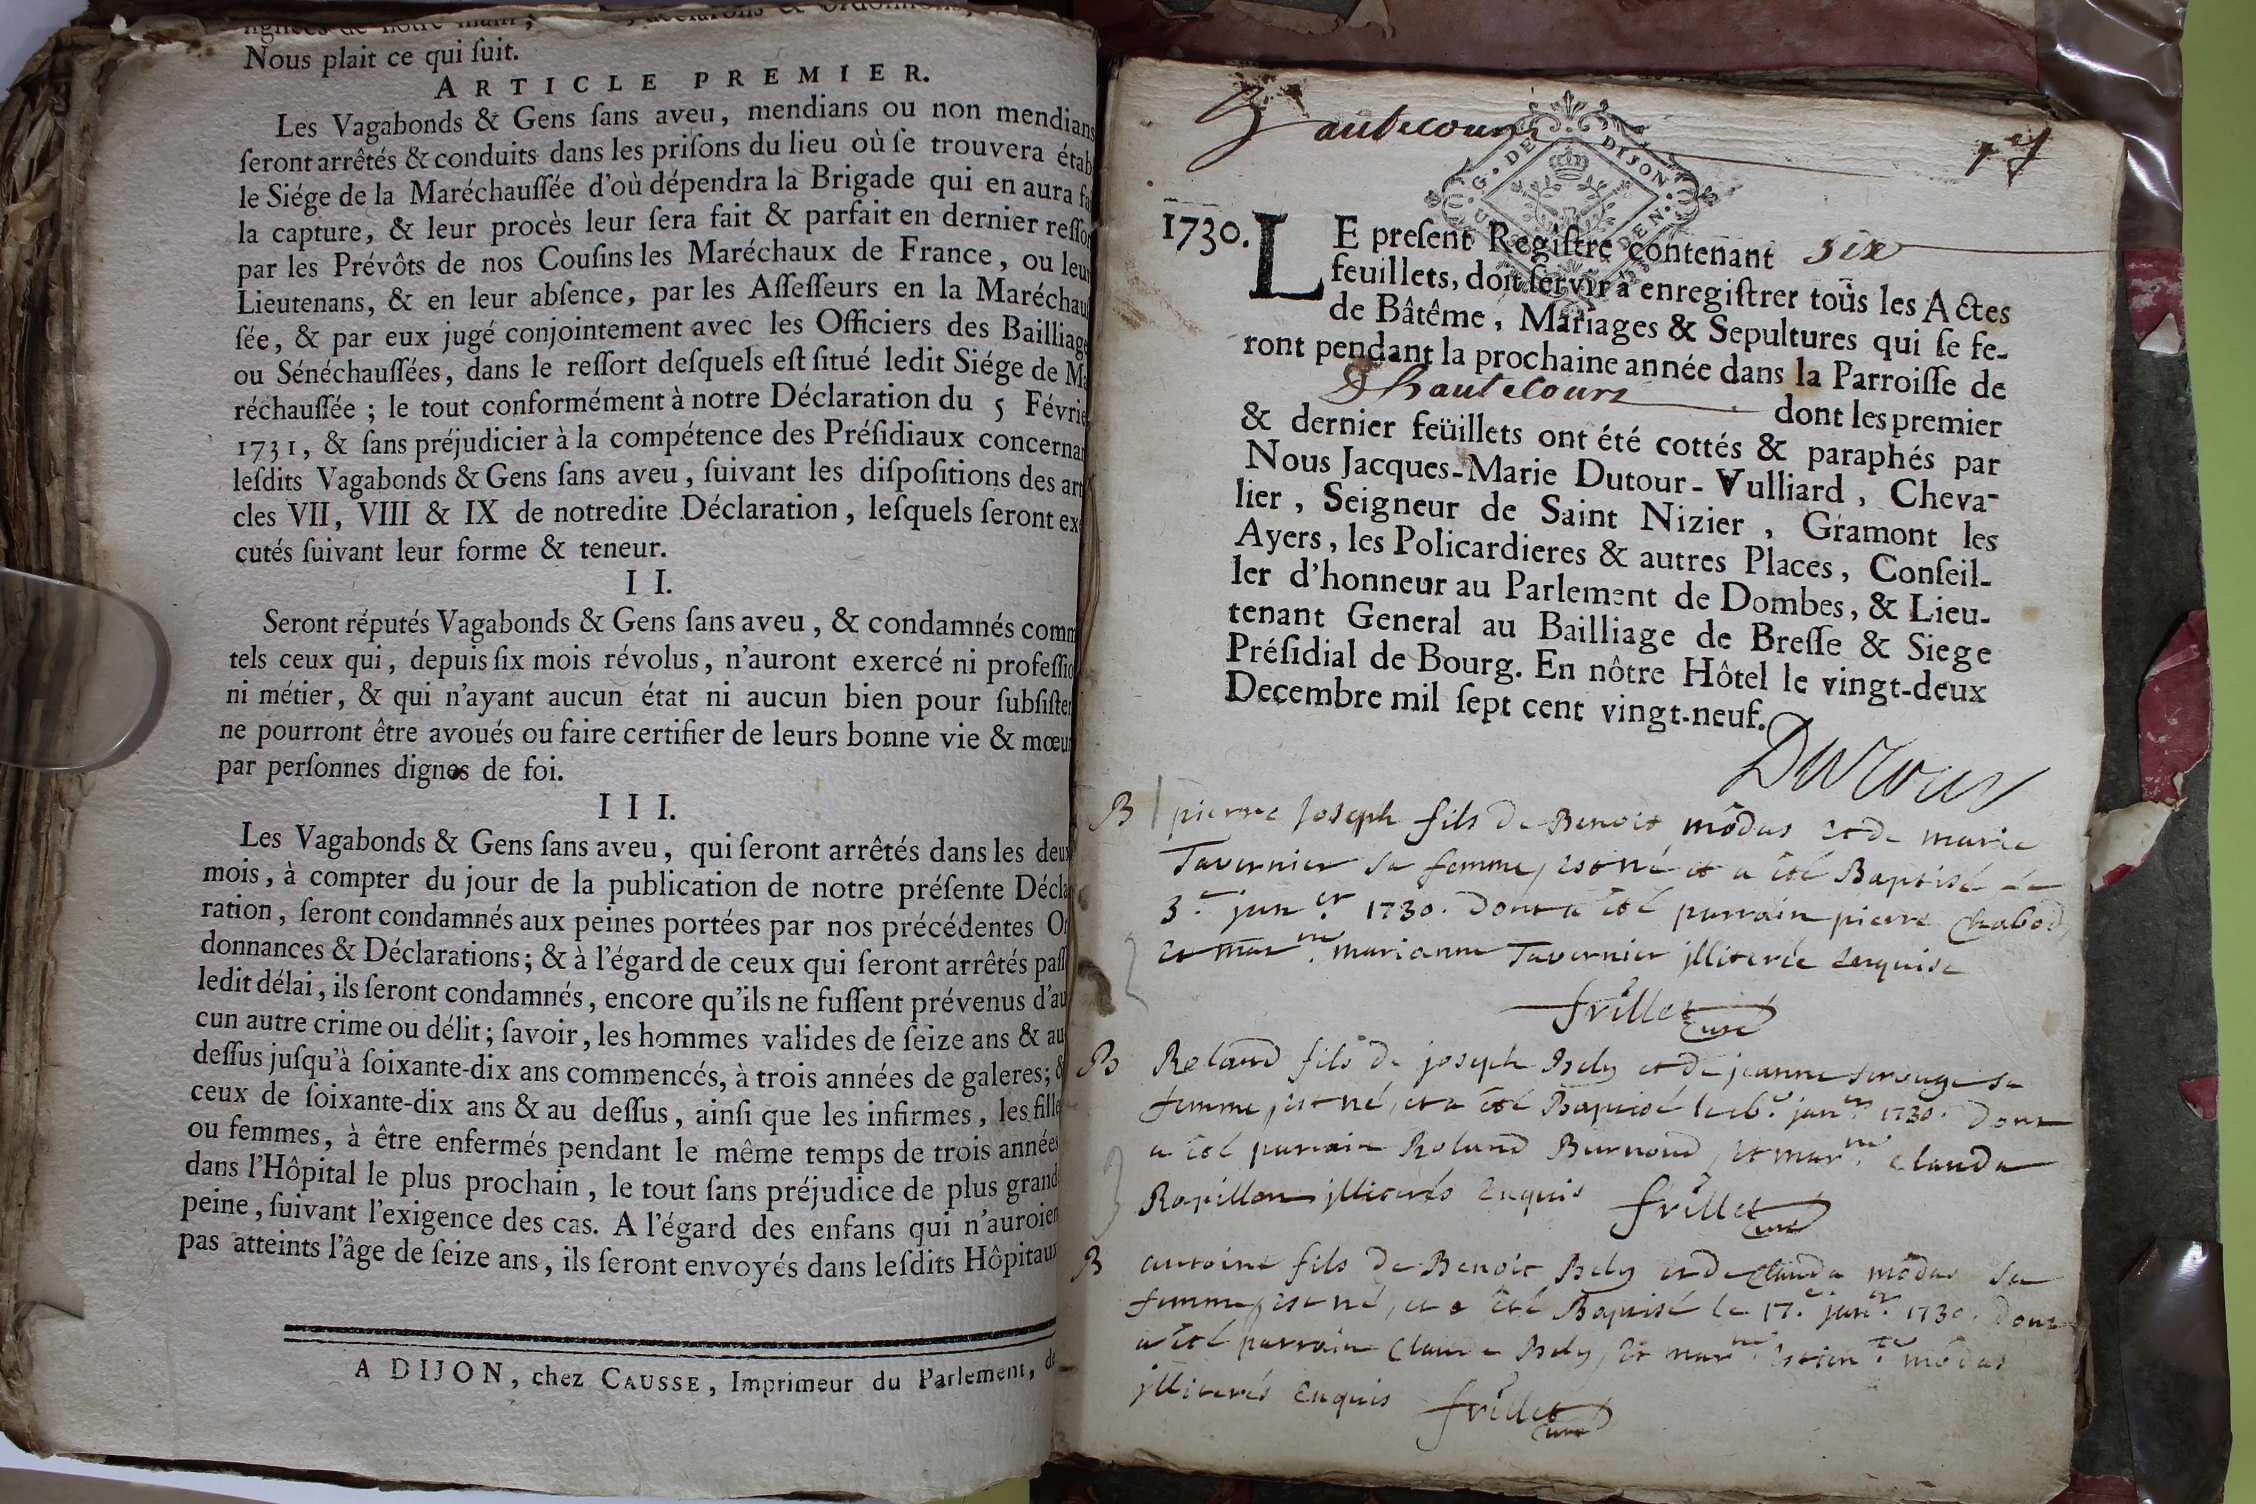 Nous plait ce qui ſuit.
ARTICLE PREMIER.
Les Vagabonds & Gens ſans aveu, mendians ou non mendians
ſeront arrêtés & conduits dans les priſons du lieu où ſe trouvera étab
le Siége de la Maréchauſſée d'où dépendra la Brigade qui en aura fa
la capture, & leur procès leur ſera fait & parfait en dernier reſſor
par les Prévôts de nos Couſins les Maréchaux de France, ou leur
Lieutenans, & en leur abſence, par les Aſſeſſeurs en la Maréchauſ
ſée, & par eux jugé conjointement avec les Officiers des Bailliage
ou Sénéchauſſées, dans le reſſort deſquels eſt ſitué ledit Siége de Ma
réchauſſée ; le tout conformément à notre Déclaration du 5 Févrie
1731, & ſans préjudicier à la compétence des Préſidiaux concernan
leſdits Vagabonds & Gens ſans aveu, ſuivant les diſpoſitions des arti
cles VII, VIII & IX de notredite Déclaration, leſquels ſeront exé
cutés ſuivant leur forme & teneur.
II.
Seront réputés Vagabonds & Gens ſans aveu, & condamnés comm
tels ceux qui, depuis ſix mois révolus, n'auront exercé ni profeſſio
ni métier, & qui n'ayant aucun état ni aucun bien pour ſubſiſter
ne pourront être avoués ou faire certifier de leurs bonne vie & mœur
par perſonnes dignes de foi.
III.
Les Vagabonds & Gens ſans aveu, qui ſeront arrêtés dans les deux
mois, à compter du jour de la publication de notre préſente Décla
ration, ſeront condamnés aux peines portées par nos précédentes Or
donnances & Déclarations; & à l'égard de ceux qui ſeront arrêtés paſſ
ledit délai, ils ſeront condamnés, encore qu'ils ne fuſſent prévenus d'au
cun autre crime ou délit; ſavoir, les hommes valides de ſeize ans & au
deſſus juſqu'à ſoixante-dix ans commencés, à trois années de galeres; &
ceux de ſoixante-dix ans & au deſſus, ainſi que les infirmes, les fille
ou femmes, à être enfermés pendant le même temps de trois années
dans l'Hôpital le plus prochain, le tout ſans préjudice de plus grand
peine, ſuivant l'exigence des cas. A l'égard des enfans qui n'auroien
pas atteints l'âge de ſeize ans, ils ſeront envoyés dans leſdits Hôpitaux
A DIJON, chez CAUSSE, Imprimeur du Parlement, de
hautecourt
G. DE DIJON
1730.
LE preſent Regiſtre contenant six
feuillets, doit ſervir à enregiſtrer toûs les Actes
de Bâtême, Mariages & Sepultures qui ſe fe-
ront pendant la prochaine année dans la Parroiſſe de
d'hautecourt dont les premier
& dernier feüillets ont été cottés & paraphés par
Nous Jacques-Marie Dutour-Vulliard, Cheva-
lier, Seigneur de Saint Nizier, Gramont les
Ayers, les Policardieres & autres Places, Conſeil-
ler d'honneur au Parlement de Dombes, & Lieu-
tenant General au Bailliage de Breſſe & Siege
Préſidial de Bourg. En nôtre Hôtel le vingt-deux
Decembre mil ſept cent vingt-neuf.
Dutour
B pierre Joseph fils de Benoit mõdas et de marie
Tavernier sa femme, est né et a été Baptisé le
3.e janer. 1730. Dont a été parrain pierre Chabod,
et marne. marianne Tavernier jlliterée enquise
frillet curé
B Roland fils de joseph Bely et de jeanne sa
femme, est né, et a été Baptisé le janer. 1730. Dont
a été parrain Roland Burnoud, et marne. Clauda
Rapillon jlliterés enquis frillet curé
B antoine fils de Benoit Bely et de Clauda mõdas sa
femme, est né, et a été Baptisé le 17.e janer. 1730. Dont
a été parrain Claude Bely, et marne. mõdas
jlliterés enquis frillet curé